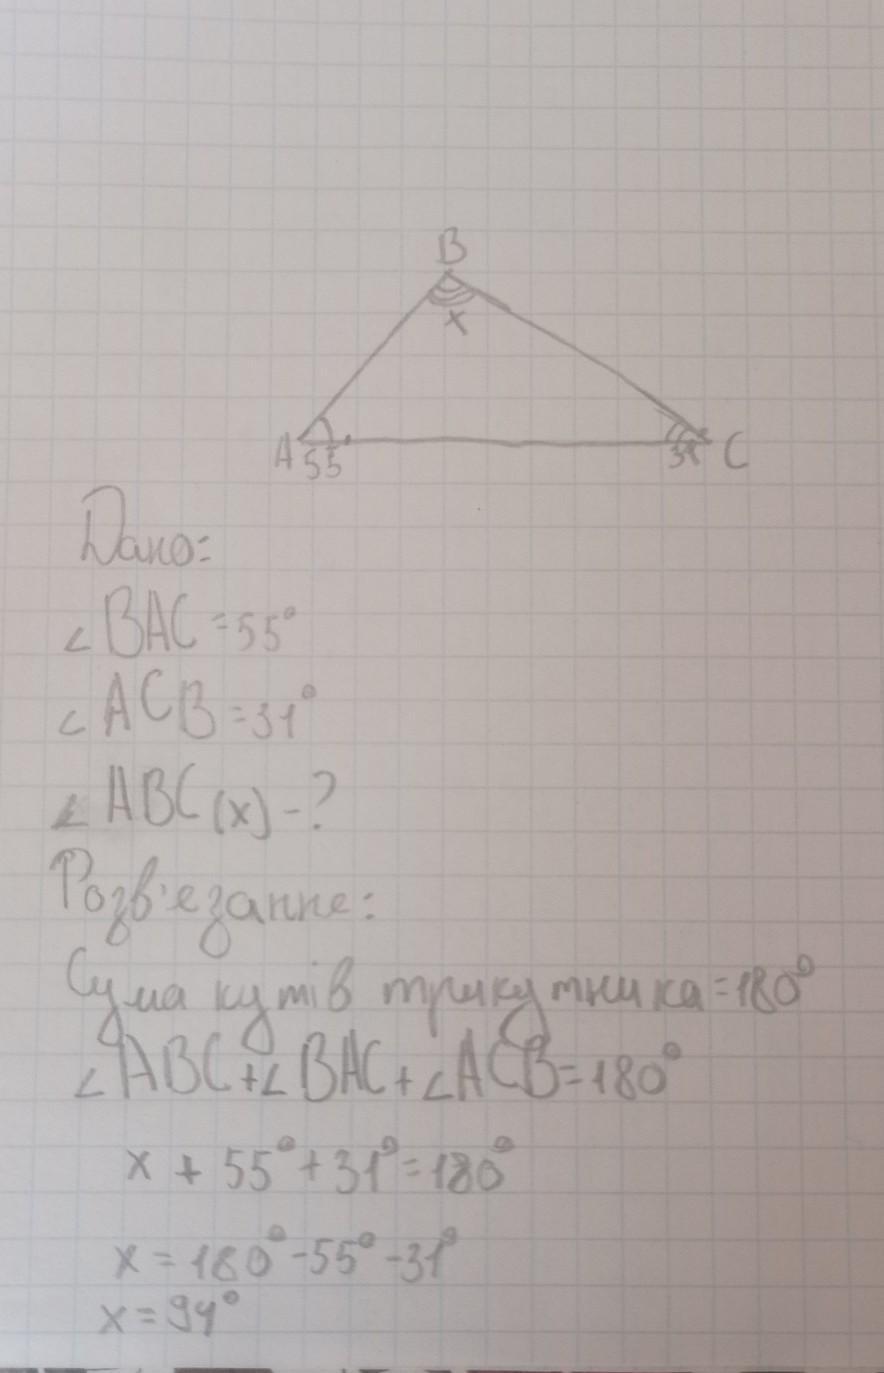 B
x
A
55
31
C
Дано:
∠BAC=55°
∠ACB=31°
∠ABC(x)-?
Розв'езанне:
Сума кутів трикутника=180°
∠ABC+∠BAC+∠ACB=180°
x + 55°+31°=180°
x=180°-55°-31°
x=94°